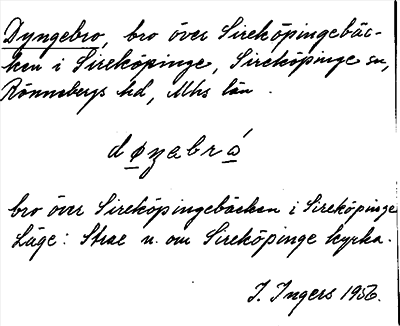 Dyngebro, bro över Sireköpingebäc-
ken i Sireköpinge, Sireköpinge sn,
Rönnebergs hd, Mhs län.
bro över Sireköpingebäcken i Sireköpinge
Läge: Strax n. om Sireköpinge kyrka.
I. Ingers 1956.